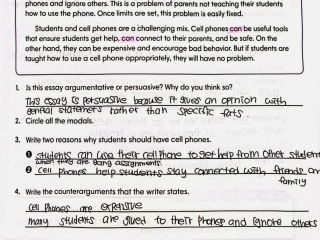 phones and ignore others. This is a problem of parents not teaching their students
how to use the phone. Once limits are set, this problem is easily fixed.
Students and cell phones are a challenging mix. Cell phones can be useful tools
that ensure students get help, can connect to their parents, and be safe. On the
other hand, they can be expensive and encourage bad behavior. But if students are
taught how to use a cell phone appropriately, they will have no problem.
1. Is this essay argumentative or persuasive? Why do you think so?
This essay is Persuasive because it gives an opinion with
general statements rather than specific fats.
2. Circle all the modals.
3. Write two reasons why students should have cell phones.
1 Students can use their cell Phone to get help from other students
when they are doing assignments.
2 Cell Phones help students stay connected with friends and
family
4. Write the counterarguments that the writer states.
Cell Phones are expensive
many students are glued to their phones and ignore others